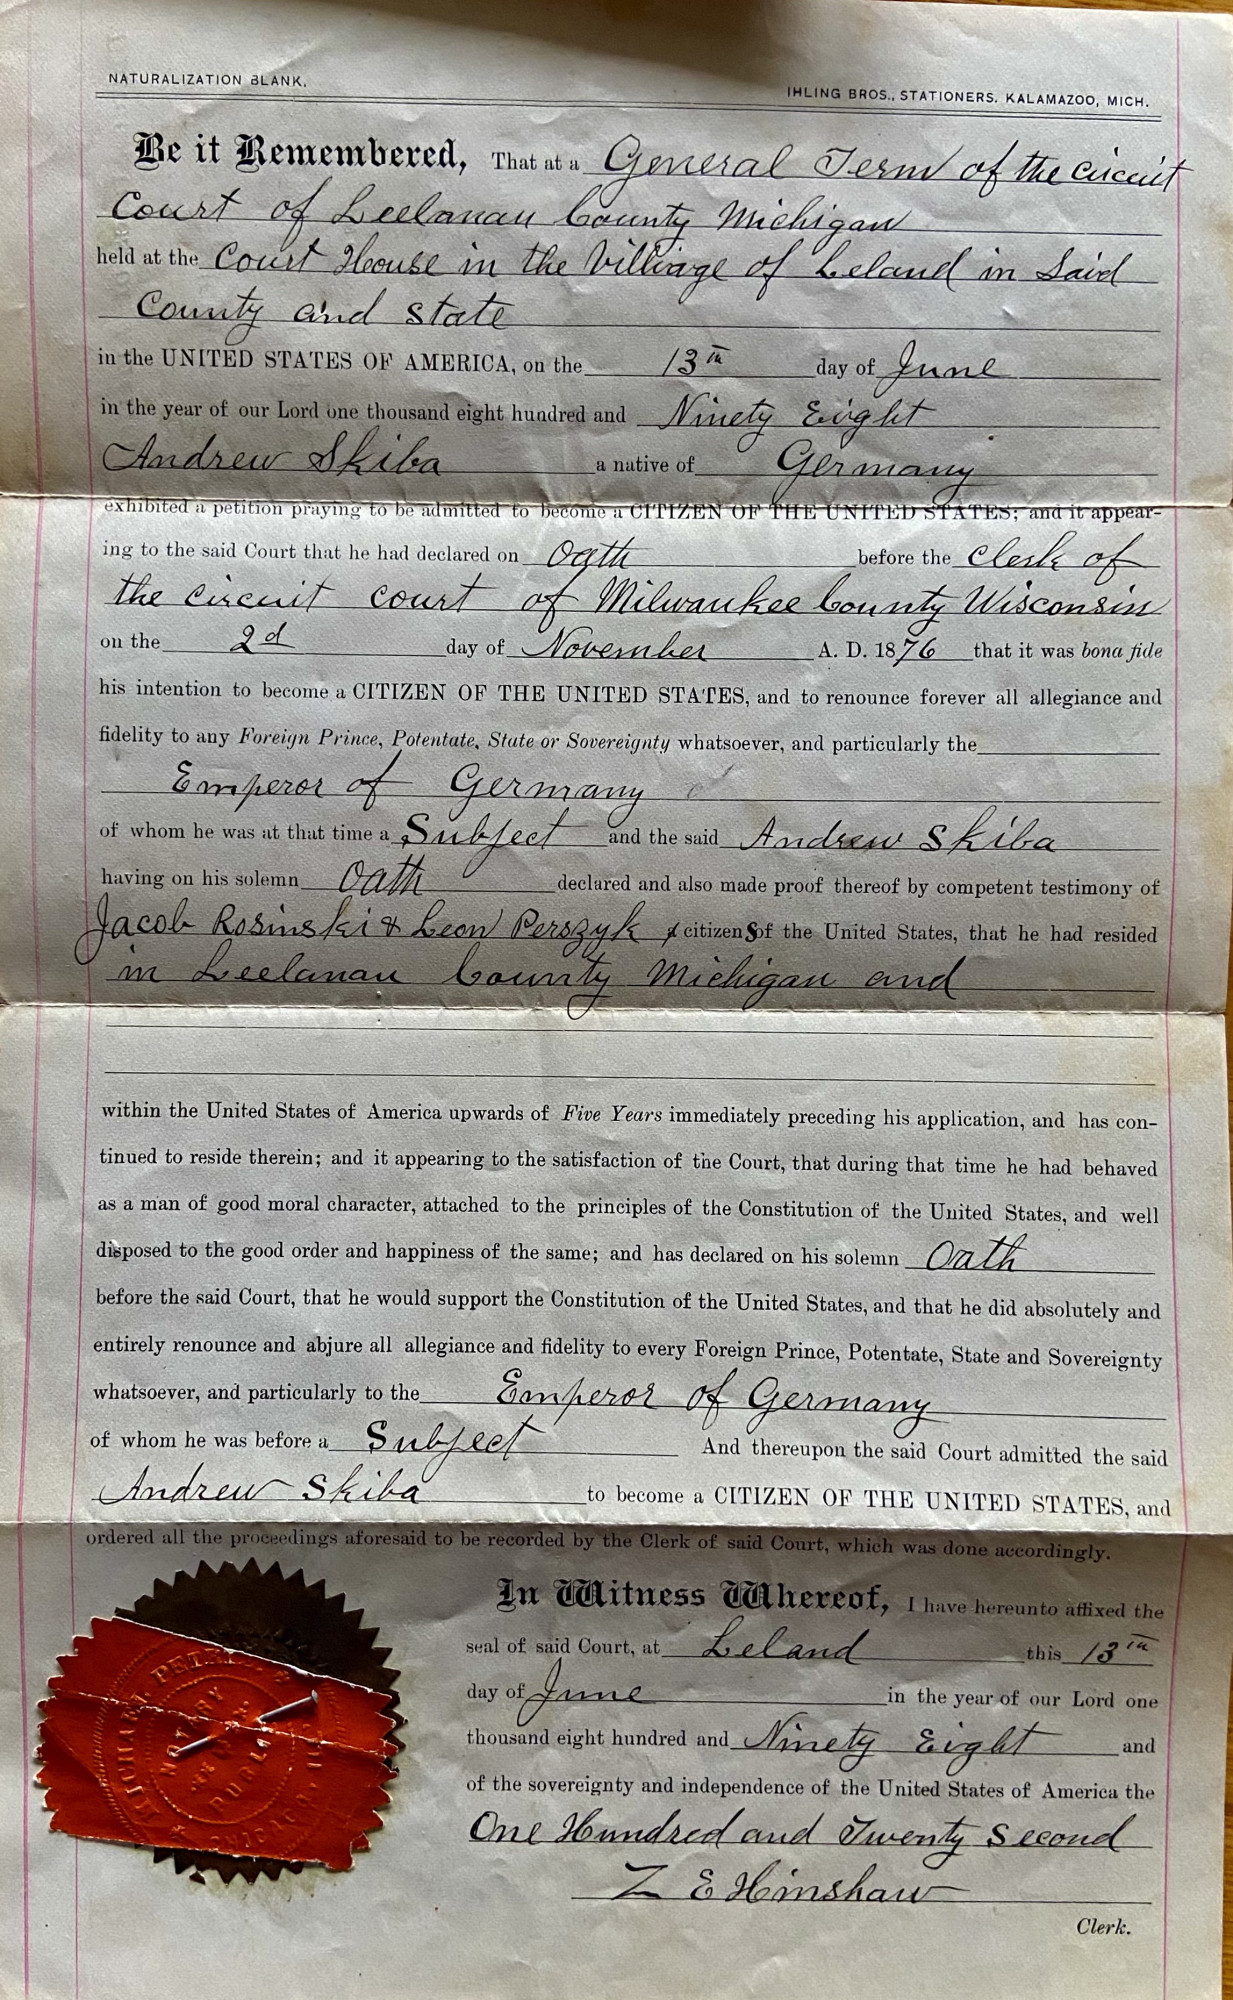 NATURALIZATION BLANK.
IHLING BROS., STATIONERS, KALAMAZOO, MICH.
Be it Remembered, That at a General Term of the circuit
Court of Leelanau County Michigan
held at the Court House in the Villiage of Leland in Said
County and state
in the UNITED STATES OF AMERICA, on the 13th day of June
in the year of our Lord one thousand eight hundred and Ninety Eight
Andrew Skiba a native of Germany
exhibited a petition praying to be admitted to become a CITIZEN OF THE UNITED STATES; and it appear-
ing to the said Court that he had declared on Oath before the Clerk of
the circuit court of Milwaukee County Wisconsin
on the 2d day of November A. D. 1876 that it was bona fide
his intention to become a CITIZEN OF THE UNITED STATES, and to renounce forever all allegiance and
fidelity to any Foreign Prince, Potentate, State or Sovereignty whatsoever, and particularly the
Emperor of Germany
of whom he was at that time a Subject and the said Andrew Skiba
having on his solemn Oath declared and also made proof thereof by competent testimony of
Jacob Rosinski & Leon Perszyk citizens of the United States, that he had resided
in Leelanau County Michigan and
within the United States of America upwards of Five Years immediately preceding his application, and has con-
tinued to reside therein; and it appearing to the satisfaction of the Court, that during that time he had behaved
as a man of good moral character, attached to the principles of the Constitution of the United States, and well
disposed to the good order and happiness of the same; and has declared on his solemn Oath
before the said Court, that he would support the Constitution of the United States, and that he did absolutely and
entirely renounce and abjure all allegiance and fidelity to every Foreign Prince, Potentate, State and Sovereignty
whatsoever, and particularly to the Emperor of Germany
of whom he was before a Subject And thereupon the said Court admitted the said
Andrew Skiba to become a CITIZEN OF THE UNITED STATES, and
ordered all the proceedings aforesaid to be recorded by the Clerk of said Court, which was done accordingly.
In Witness Whereof, I have hereunto affixed the
seal of said Court, at Leland this 13th
day of June in the year of our Lord one
thousand eight hundred and Ninety Eight and
of the sovereignty and independence of the United States of America the
One Hundred and Twenty Second
Z E Hinshaw
Clerk.
MICHAEL
NOTARY
PUBLIC
CHICAGO, ILL.